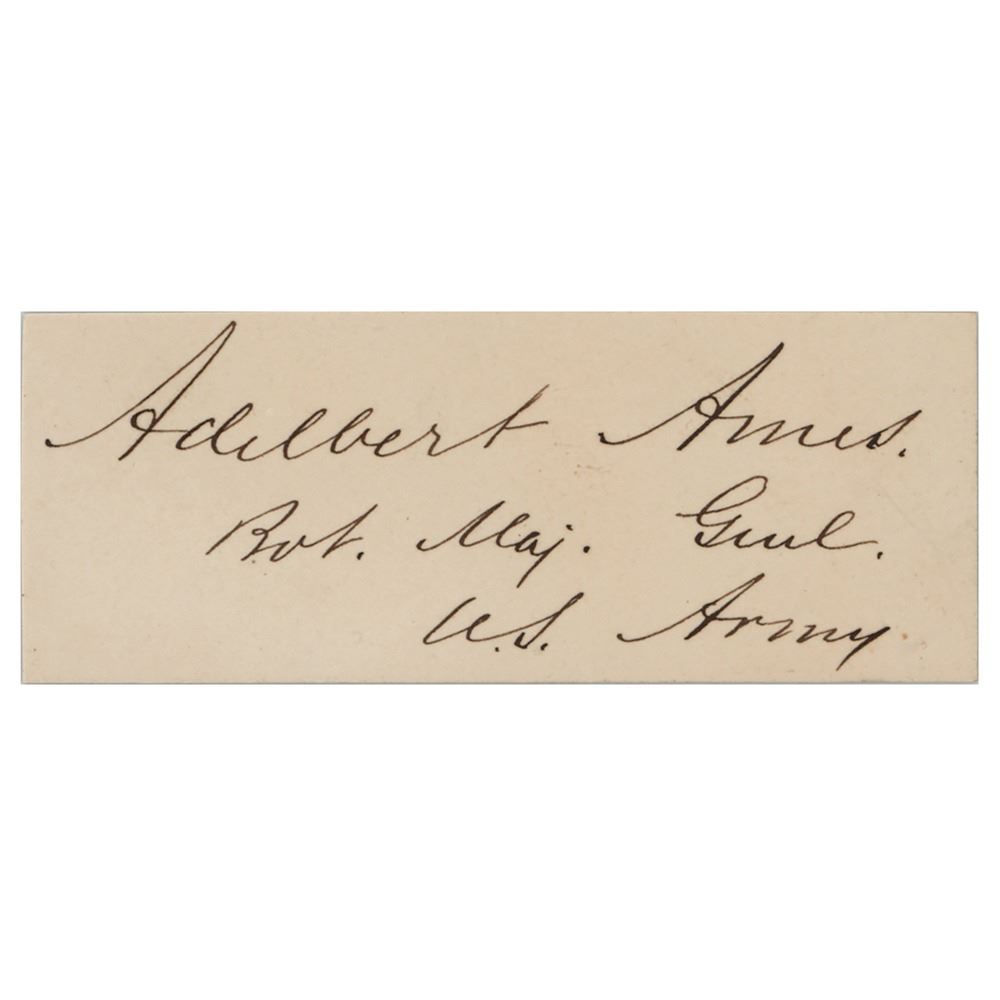 Adelbert Ames.
Bvt. Maj. Genl.
U.S. Army